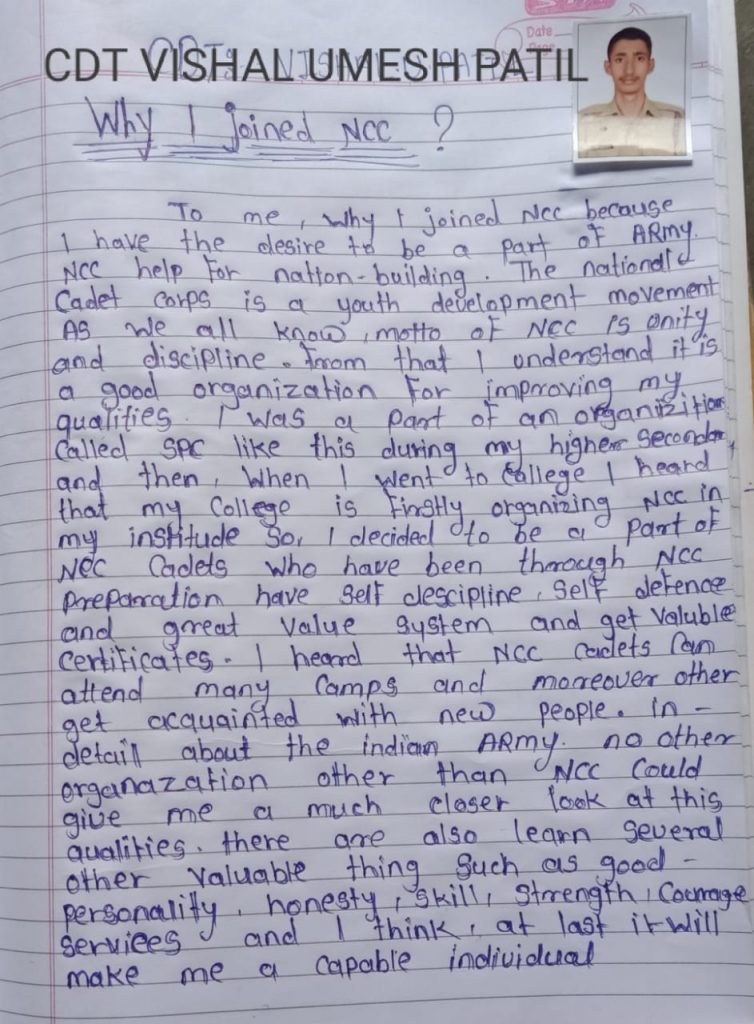 Date
CDT VISHAL UMESH PATIL
Why I joined NCC ?
To me, why I joined NCC because
I have the desire to be a part of ARMY.
NCC help for nation-building. The national
Cadet corps is a youth development movement
As we all know, motto of NCC is onity
and discipline. From that I understand it is
a good organization for improving my
qualities. I was a part of an organizition
called SPC like this during my higher seconda
and then, when I went to college I heard
that my college is firstly organizing NCC in
my institude So, I decided to be a part of
NCC Cadets who have been thorough NCC
preparration have self descipline, self defence
and great value system and get valuble
certificates. I heard that NCC cadets can
attend many camps and moreover other
get acquainted with new people. in -
detail about the indian ARMY. no other
organazation other than NCC could
give me a much closer look at this
qualities. there are also learn several
other valuable thing such as good -
personality, honesty, skill, strength, Courage
services and I think, at last it will
make me a capable individual